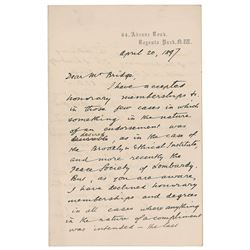 64. Avenue Road,
Regents Park, N.W.
April 20, 1897
Dear Mr Bridge,
I have accepted
honorary memberships to,
in those few cases in which
something in the nature
of an endorsement was
being
desirable, as in the case of
the Brooklyn Ethical Institute
and more recently the
Peace Society of Lombardy
But, as you are aware,
I have declined honorary
memberships and degrees
in all cases where anything
in the nature of a compliment
was intended – the last